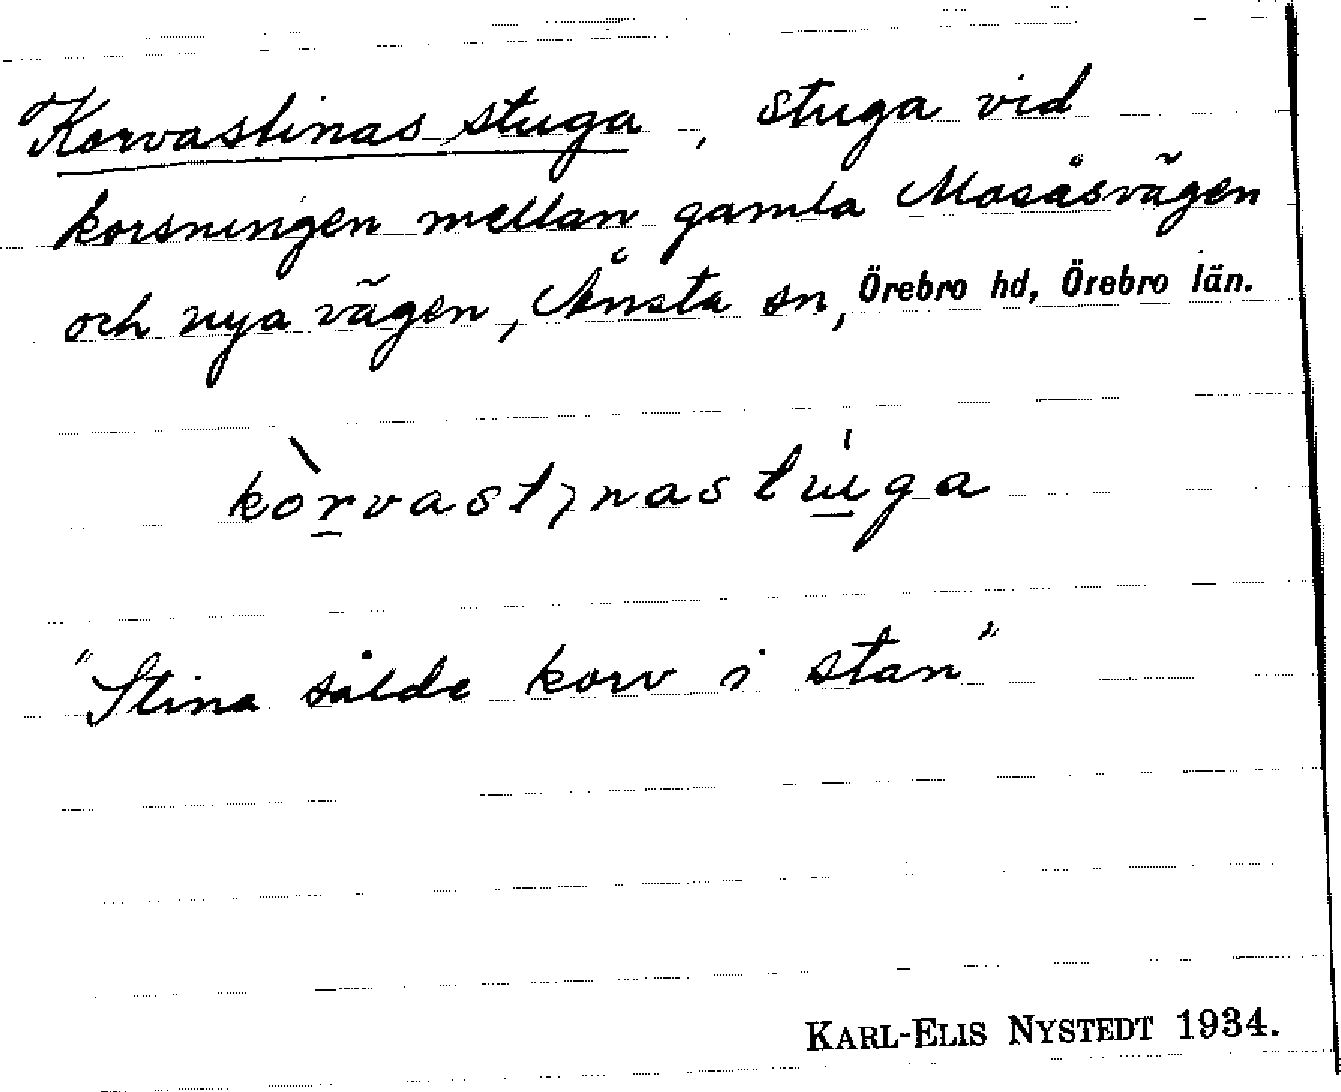 Korvastinas stuga, stuga vid
korsningen mellan gamla Mosåsvägen
och nya vägen, Ånsta sn, Örebro hd, Örebro län.
kòrvastɩnastɯ́ga
"Stina sålde korv i stan"
KARL-ELIS NYSTEDT 1934.